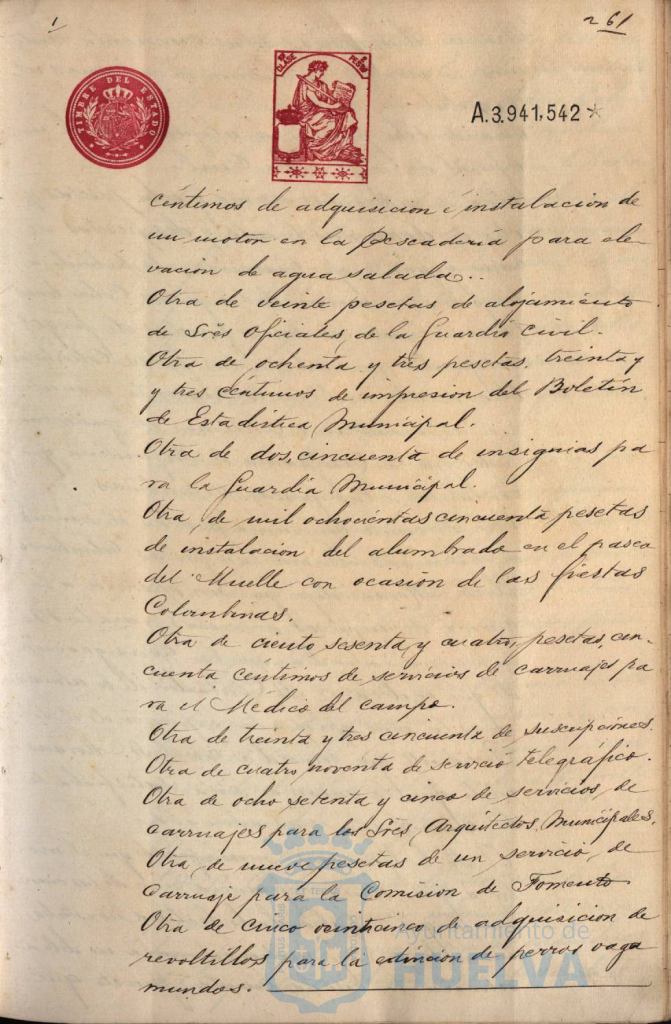 1
261
TIMBRE DEL ESTADO
CLASE
A.3.941,542
céntimos de adquisicion é instalacion de
un motor en la Pescadería para ele-
vacion de agua salada..
Otra de veinte pesetas de alojamiento
de Srēs Oficiales de la Guardia Civil.
Otra de ochenta y tres pesetas, treinta y
y tres centimos de impresion del Boletín
de Estadistica Municipal.
Otra de dos, cincuenta de insignias pa
ra la Guardia Municipal.
Otra, de mil ochocientas cincuenta pesetas
de instalacion del alumbrado en el paseo
del Muelle con ocasión de las fiestas
Colombinas.
Otra de ciento sesenta y cuatro, pesetas, cin-
cuenta céntimos de servicios de carruajes pa
ra el Médico del campo.
Otra de treinta y tres cincuenta de suscripciones.
Otra de cuatro noventa de servicio telegráfico.
Otra de ocho setenta y cinco de servicios, de
carruajes para los Srēs, Arquitectos, Municipales.
Otra, de nueve pesetas de un servicio, de
carruaje para la Comision de Fomento
Otra de cinco veinticinco de adquisicion de
revoltillos para la de perros vaga
mundos.
Ayuntamiento de
HUELVA